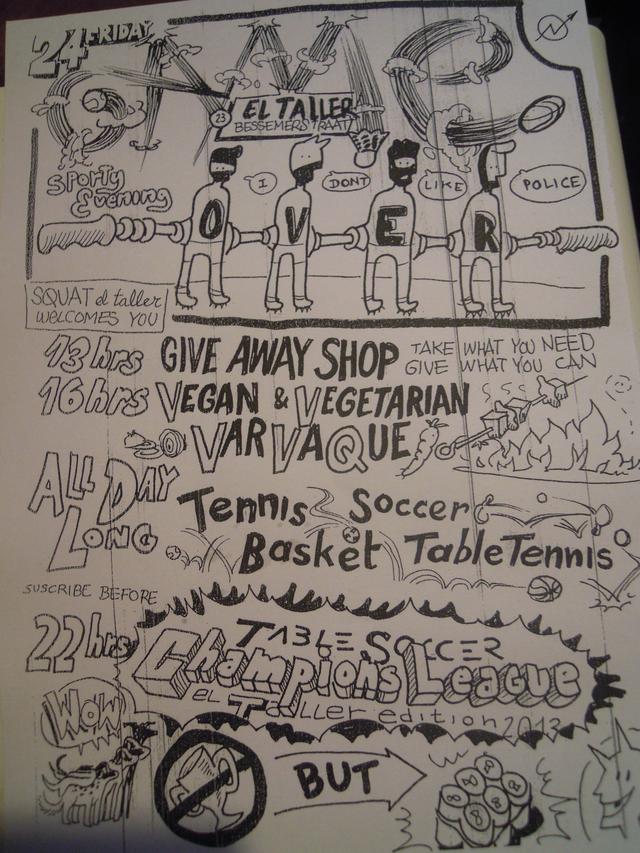 24 FRIDAY
GAME
23 EL TALLER
BESSEMERSTRAAT
SPORTY
Evening
I DONT LIKE POLICE
OVER
SQUAT el taller
WELCOMES YOU
13hrs GIVE AWAY SHOP TAKE WHAT YOU NEED
GIVE WHAT YOU CAN
16hrs VEGAN & VEGETARIAN
VARVAQUE
ALL DAY
LONG
Tennis Soccer
Basket TableTennis
SUSCRIBE BEFORE
22hrs TABLE SOCCER
Champions League
el Taller edition 2013
WOW
BUT